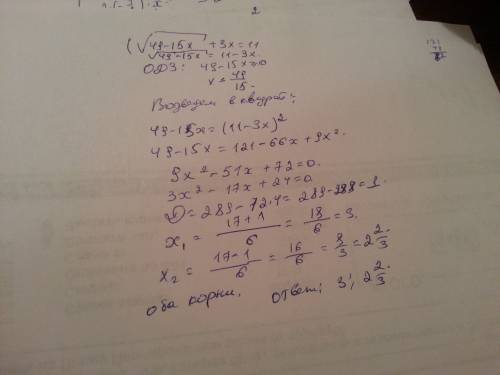 √49-15x + 3x = 11
√49-15x = 11-3x.
ОДЗ: 49-15x ≥ 0
x ≤ 49/15.
Возведем в квадрат:
49-15x = (11-3x)²
49-15x = 121-66x+9x².
9x²-51x+72=0.
3x²-17x+24=0
D=289-72·4=289-288=1.
x₁ = 17+1/6 = 18/6 = 3.
x₂ = 17-1/6 = 16/6 = 8/3 = 2 2/3.
оба корни. ответ: 3; 2 2/3.